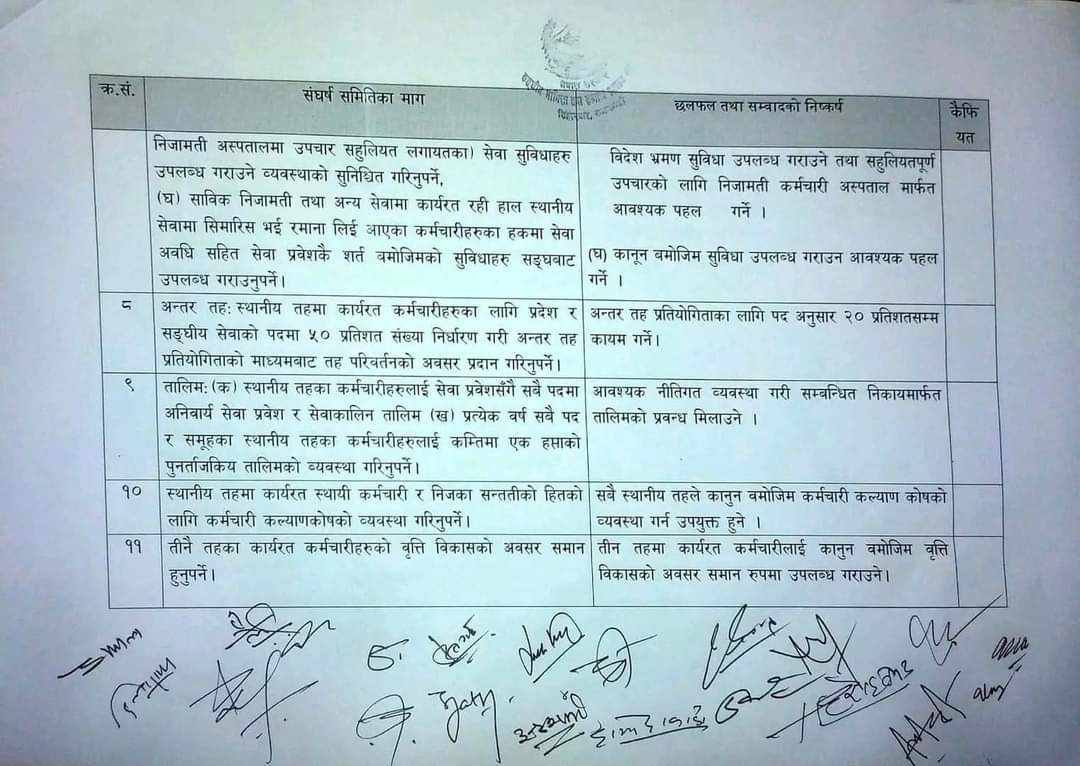 क्र.सं.
संघर्ष समितिका माग
छलफल तथा सम्वादको निष्कर्ष
कैफि
यत
निजामती अस्पतालमा उपचार सहुलियत लगायतका) सेवा सुविधाहरु
उपलब्ध गराउने व्यवस्थाको सुनिश्चित गरिनुपर्ने,
(घ) साविक निजामती तथा अन्य सेवामा कार्यरत रही हाल स्थानीय
सेवामा सिमारिस भई रमाना लिई आएका कर्मचारीहरुका हकमा सेवा
अवधि सहित सेवा प्रवेशकै शर्त वमोजिमको सुविधाहरु सङ्घबाट
उपलब्ध गराउनुपर्ने।
विदेश भ्रमण सुविधा उपलब्ध गराउने तथा सहुलियतपूर्ण
उपचारको लागि निजामती कर्मचारी अस्पताल मार्फत
आवश्यक पहल गर्ने ।
(घ) कानून वमोजिम सुविधा उपलब्ध गराउन आवश्यक पहल
गर्ने ।
८
अन्तर तह: स्थानीय तहमा कार्यरत कर्मचारीहरुका लागि प्रदेश र
सङ्घीय सेवाको पदमा ५० प्रतिशत संख्या निर्धारण गरी अन्तर तह
प्रतियोगिताको माध्यमबाट तह परिवर्तनको अवसर प्रदान गरिनुपर्ने।
अन्तर तह प्रतियोगिताका लागि पद अनुसार २० प्रतिशतसम्म
कायम गर्ने।
९
तालिम: (क) स्थानीय तहका कर्मचारीहरुलाई सेवा प्रवेशसँगै सबै पदमा
अनिवार्य सेवा प्रवेश र सेवाकालिन तालिम (ख) प्रत्येक वर्ष सबै पद
र समूहका स्थानीय तहका कर्मचारीहरुलाई कम्तिमा एक हप्ताको
पुनर्ताजकिय तालिमको व्यवस्था गरिनुपर्ने।
आवश्यक नीतिगत व्यवस्था गरी सम्बन्धित निकायमार्फत
तालिमको प्रवन्ध मिलाउने ।
१०
स्थानीय तहमा कार्यरत स्थायी कर्मचारी र निजका सन्ततीको हितको
लागि कर्मचारी कल्याणकोषको व्यवस्था गरिनुपर्ने।
सबै स्थानीय तहले कानुन वमोजिम कर्मचारी कल्याण कोषको
व्यवस्था गर्न उपयुक्त हुने ।
११
तीनै तहका कार्यरत कर्मचारीहरुको वृत्ति विकासको अवसर समान
हुनुपर्ने।
तीन तहमा कार्यरत कर्मचारीलाई कानुन वमोजिम वृत्ति
विकासको अवसर समान रुपमा उपलब्ध गराउने।